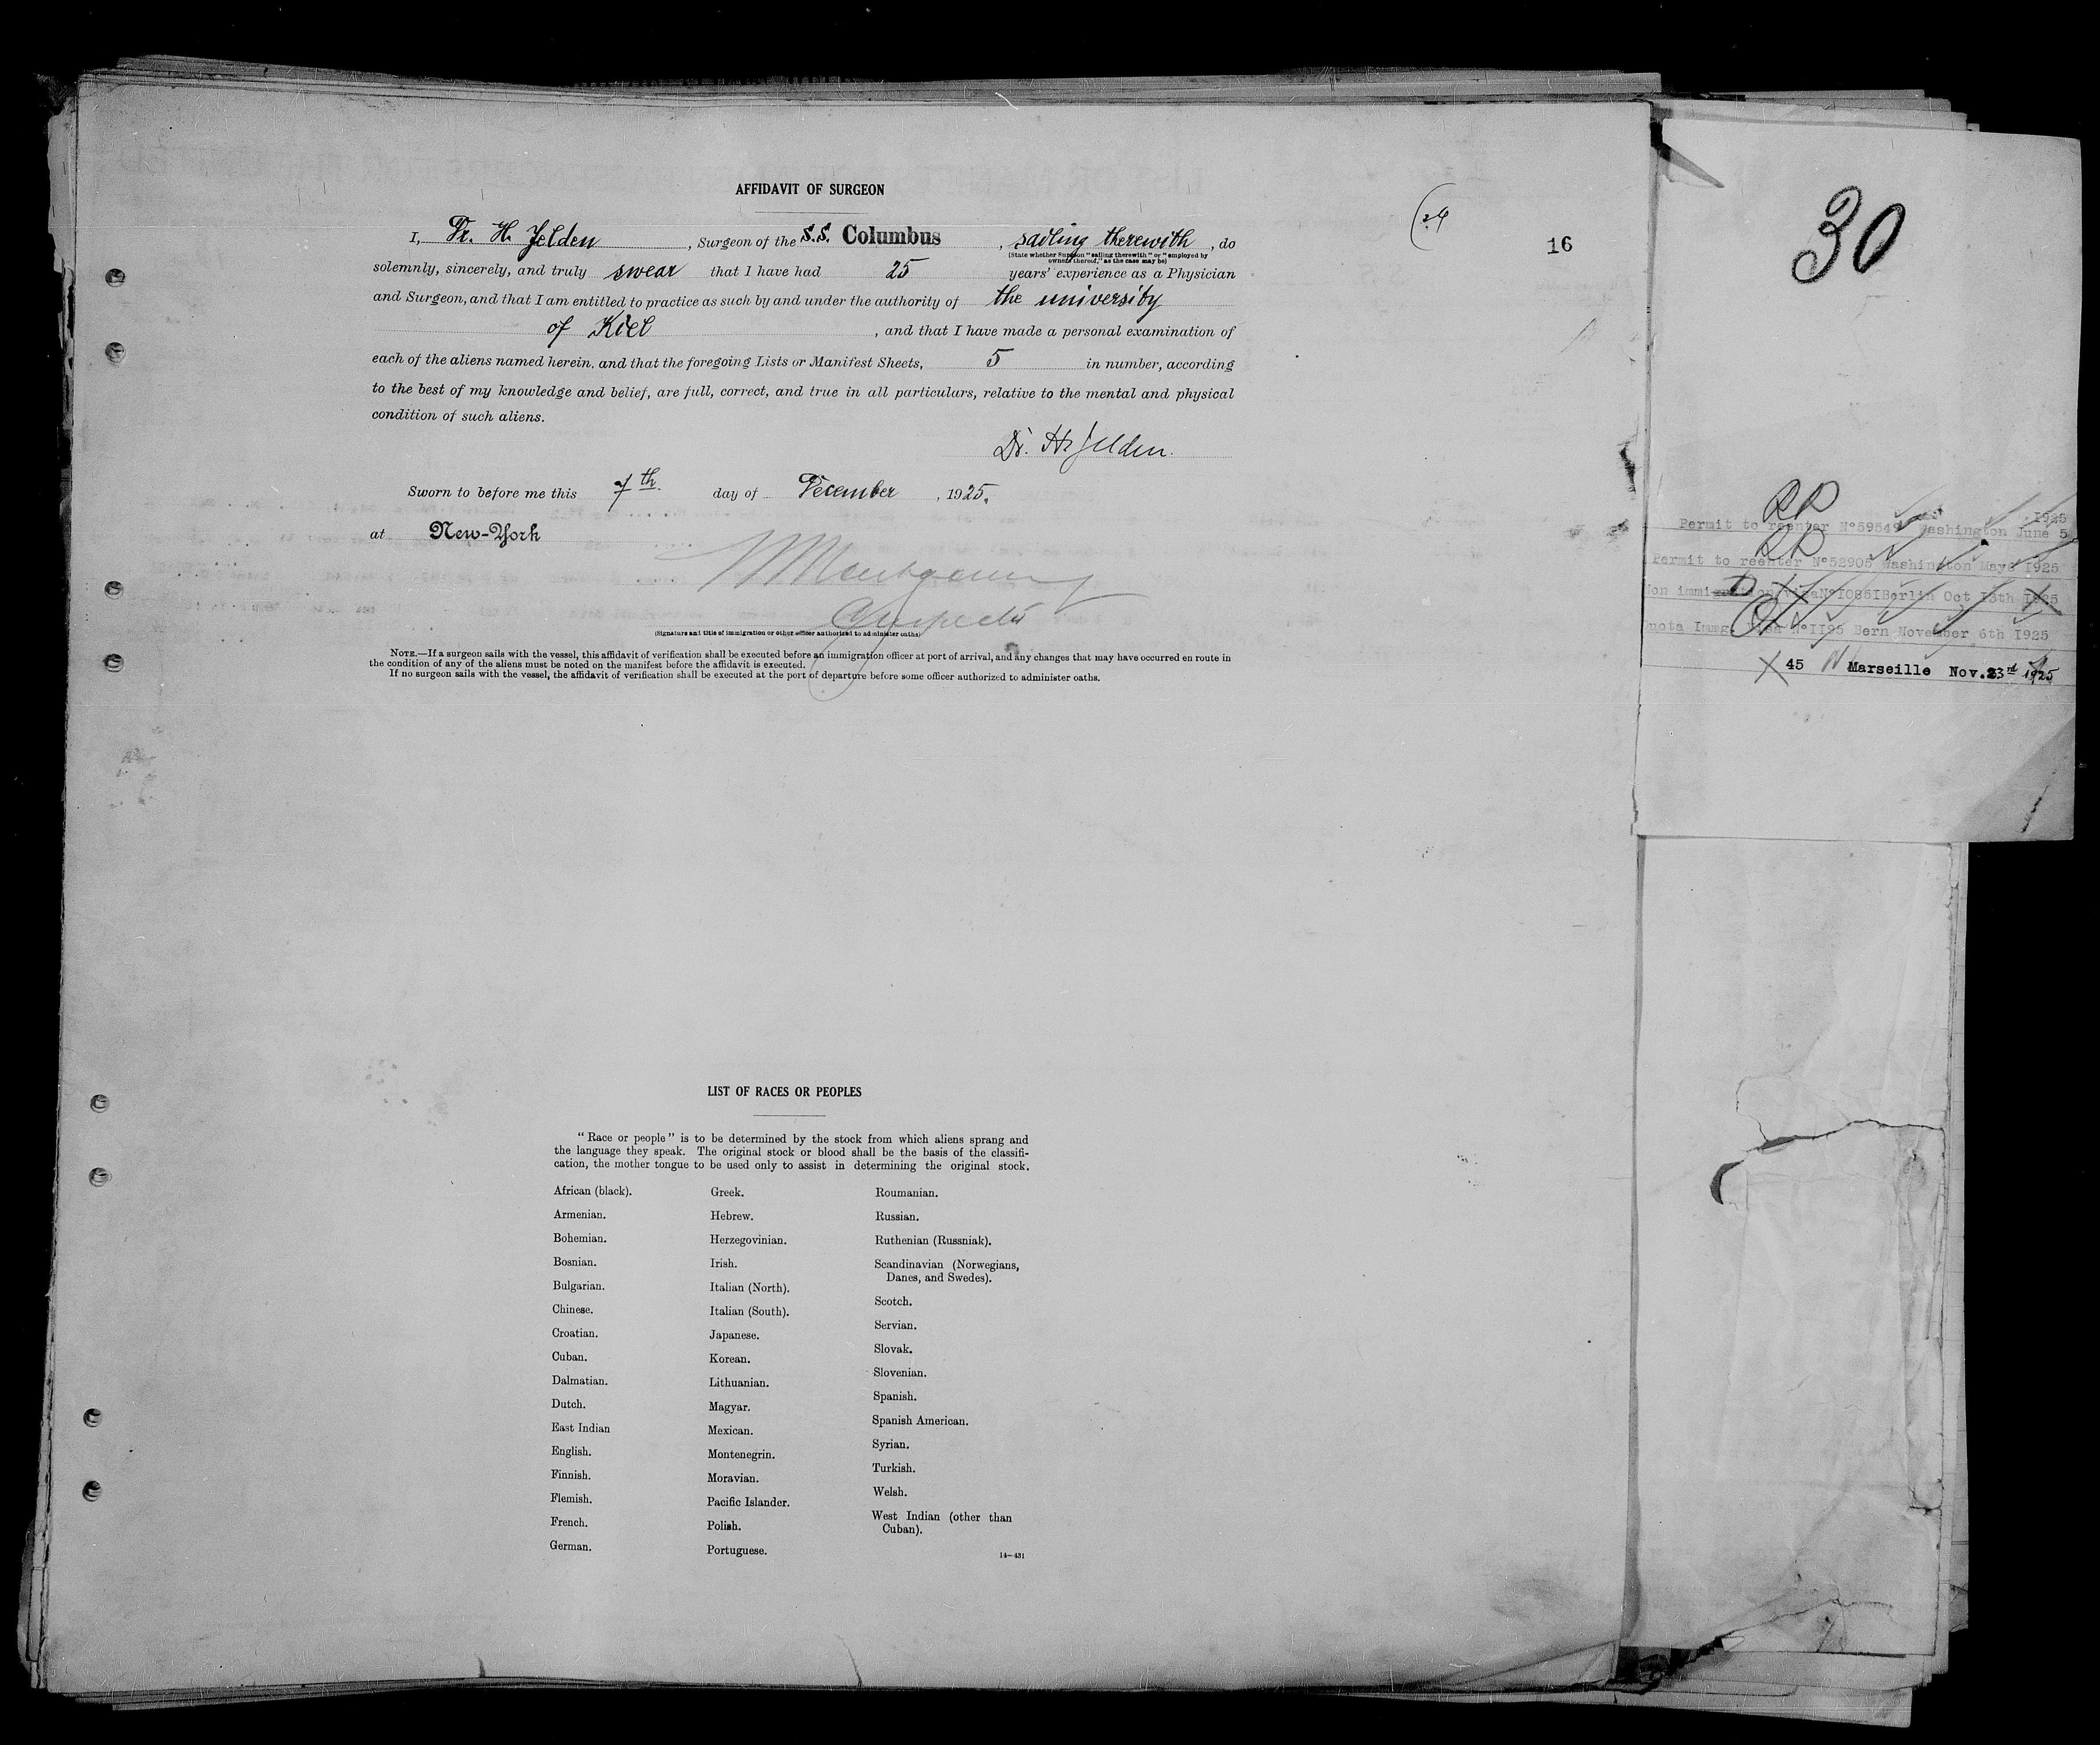 AFFIDAVIT OF SURGEON
16
I, Dr. H. Jelden, Surgeon of the S.S. Columbus, sailing therewith, do
(State whether Surgeon "sailing therewith" or "employed by
owners thereof," as the case may be)
solemnly, sincerely, and truly swear that I have had 25 years' experience as a Physician
and Surgeon, and that I am entitled to practice as such by and under the authority of the university
of Kiel, and that I have made a personal examination of
each of the aliens named herein, and that the foregoing Lists or Manifest Sheets, 5 in number, according
to the best of my knowledge and belief, are full, correct, and true in all particulars, relative to the mental and physical
condition of such aliens.
Dr. H. Jelden.
Sworn to before me this 7th day of December, 1925.
at New-York
Inspector
(Signature and title of immigration or other officer authorized to administer oaths)
NOTE.—If a surgeon sails with the vessel, this affidavit of verification shall be executed before an immigration officer at port of arrival, and any changes that may have occurred en route in
the condition of any of the aliens must be noted on the manifest before the affidavit is executed.
If no surgeon sails with the vessel, the affidavit of verification shall be executed at the port of departure before some officer authorized to administer oaths.
LIST OF RACES OR PEOPLES
"Race or people" is to be determined by the stock from which aliens sprang and
the language they speak. The original stock or blood shall be the basis of the classifi-
cation, the mother tongue to be used only to assist in determining the original stock.
African (black).
Armenian.
Bohemian.
Bosnian.
Bulgarian.
Chinese.
Croatian.
Cuban.
Dalmatian.
Dutch.
East Indian
English.
Finnish.
Flemish.
French.
German.
Greek.
Hebrew.
Herzegovinian.
Irish.
Italian (North).
Italian (South).
Japanese.
Korean.
Lithuanian.
Magyar.
Mexican.
Montenegrin.
Moravian.
Pacific Islander.
Polish.
Portuguese.
Roumanian.
Russian.
Ruthenian (Russniak).
Scandinavian (Norwegians,
Danes, and Swedes).
Scotch.
Servian.
Slovak.
Slovenian.
Spanish.
Spanish American.
Syrian.
Turkish.
Welsh.
West Indian (other than
Cuban).
14—431
30
RP
1925
Permit to reenter N°59549 Washington June 5
RP
Permit to reenter N°52905 Washington May6 1925
on immigration Visa N°10851 Berlin Oct 13th 1925
uota Immg. Visa N°1195 Bern November 6th 1925
45 Marseille Nov.23rd 1925